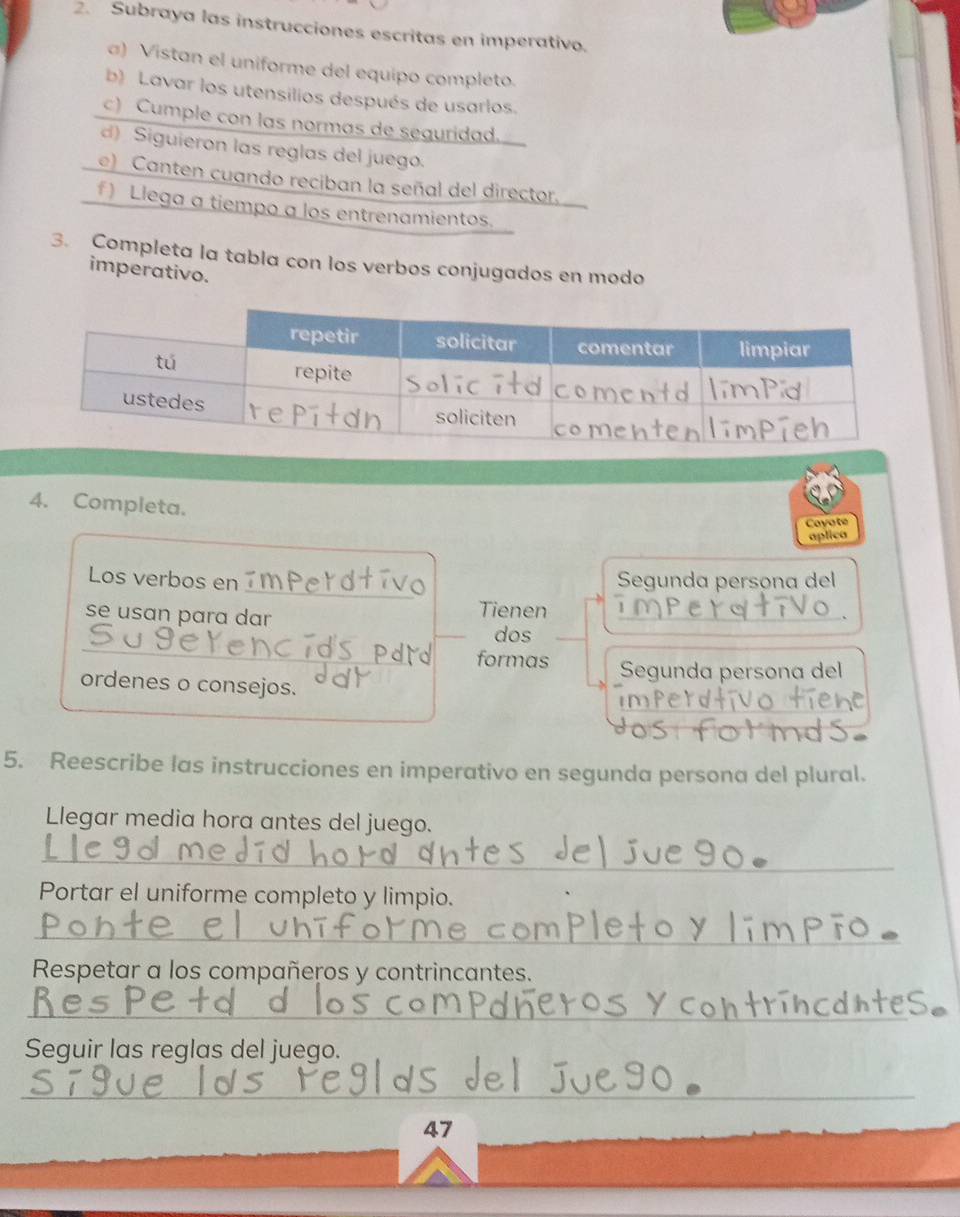 2. Subraya las instrucciones escritas en imperativo.
a) Vistan el uniforme del equipo completo.
b) Lavar los utensilios después de usarlos.
c) Cumple con las normas de seguridad.
d) Siguieron las reglas del juego.
e) Canten cuando reciban la señal del director.
f) Llega a tiempo a los entrenamientos.
3. Completa la tabla con los verbos conjugados en modo
imperativo.
repetir solicitar comentar limpiar
tú repite solicita comenta limpia
ustedes repitan soliciten comenten limpien
4. Completa.
Coyote
aplica
Los verbos en imperativo
se usan para dar
Sugerencias para
ordenes o consejos. dar
Tienen
dos
formas
Segunda persona del
imperativo.
Segunda persona del
imperativo tiene
dos formas.
5. Reescribe las instrucciones en imperativo en segunda persona del plural.
Llegar media hora antes del juego.
Llega media hora antes del juego.
Portar el uniforme completo y limpio.
Ponte el uniforme completo y limpio.
Respetar a los compañeros y contrincantes.
Respeta a los compañeros y contrincantes.
Seguir las reglas del juego.
Sigue las reglas del juego.
47